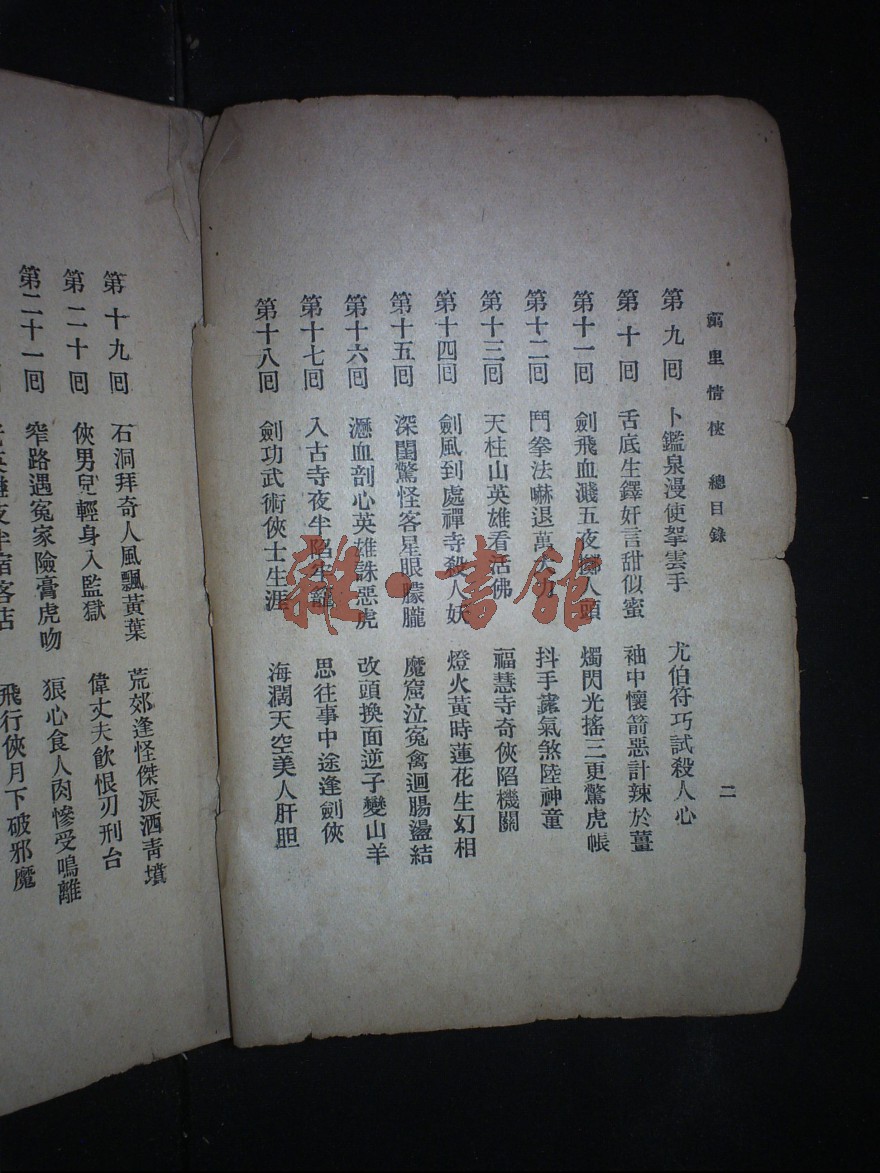 萬里情俠 總目錄
二
第九囘 卜鑑泉漫使拏雲手 尤伯符巧試殺人心
第十囘 舌底生鐸奸言甜似蜜 袖中懷箭惡計辣於薑
第十一囘 劍飛血濺五夜擲人頭 燭閃光搖三更驚虎帳
第十二囘 鬥拳法嚇退萬 力 抖手 氣煞陸神童
第十三囘 天柱山英雄看活佛 福慧寺奇俠陷機關
第十四囘 劍風到處禪寺殺人妖 燈火黃時蓮花生幻相
第十五囘 深閨驚怪客星眼朦朧 魔窟泣冤禽迴腸盪結
第十六囘 瀝血剖心英雄誅惡虎 改頭換面逆子變山羊
第十七囘 入古寺夜半陷牢籠 思往事中途逢劍俠
第十八囘 劍功武術俠士生涯 海濶天空美人肝胆
第十九囘 石洞拜奇人風飄黃葉 荒郊逢怪傑淚洒靑墳
第二十囘 俠男兒輕身入監獄 偉丈夫飮恨刃刑台
第二十一囘 窄路遇冤家險膏虎吻 狠心食人肉慘受鳴離
夜半宿客店 飛行俠月下破邪魔
雜·書館